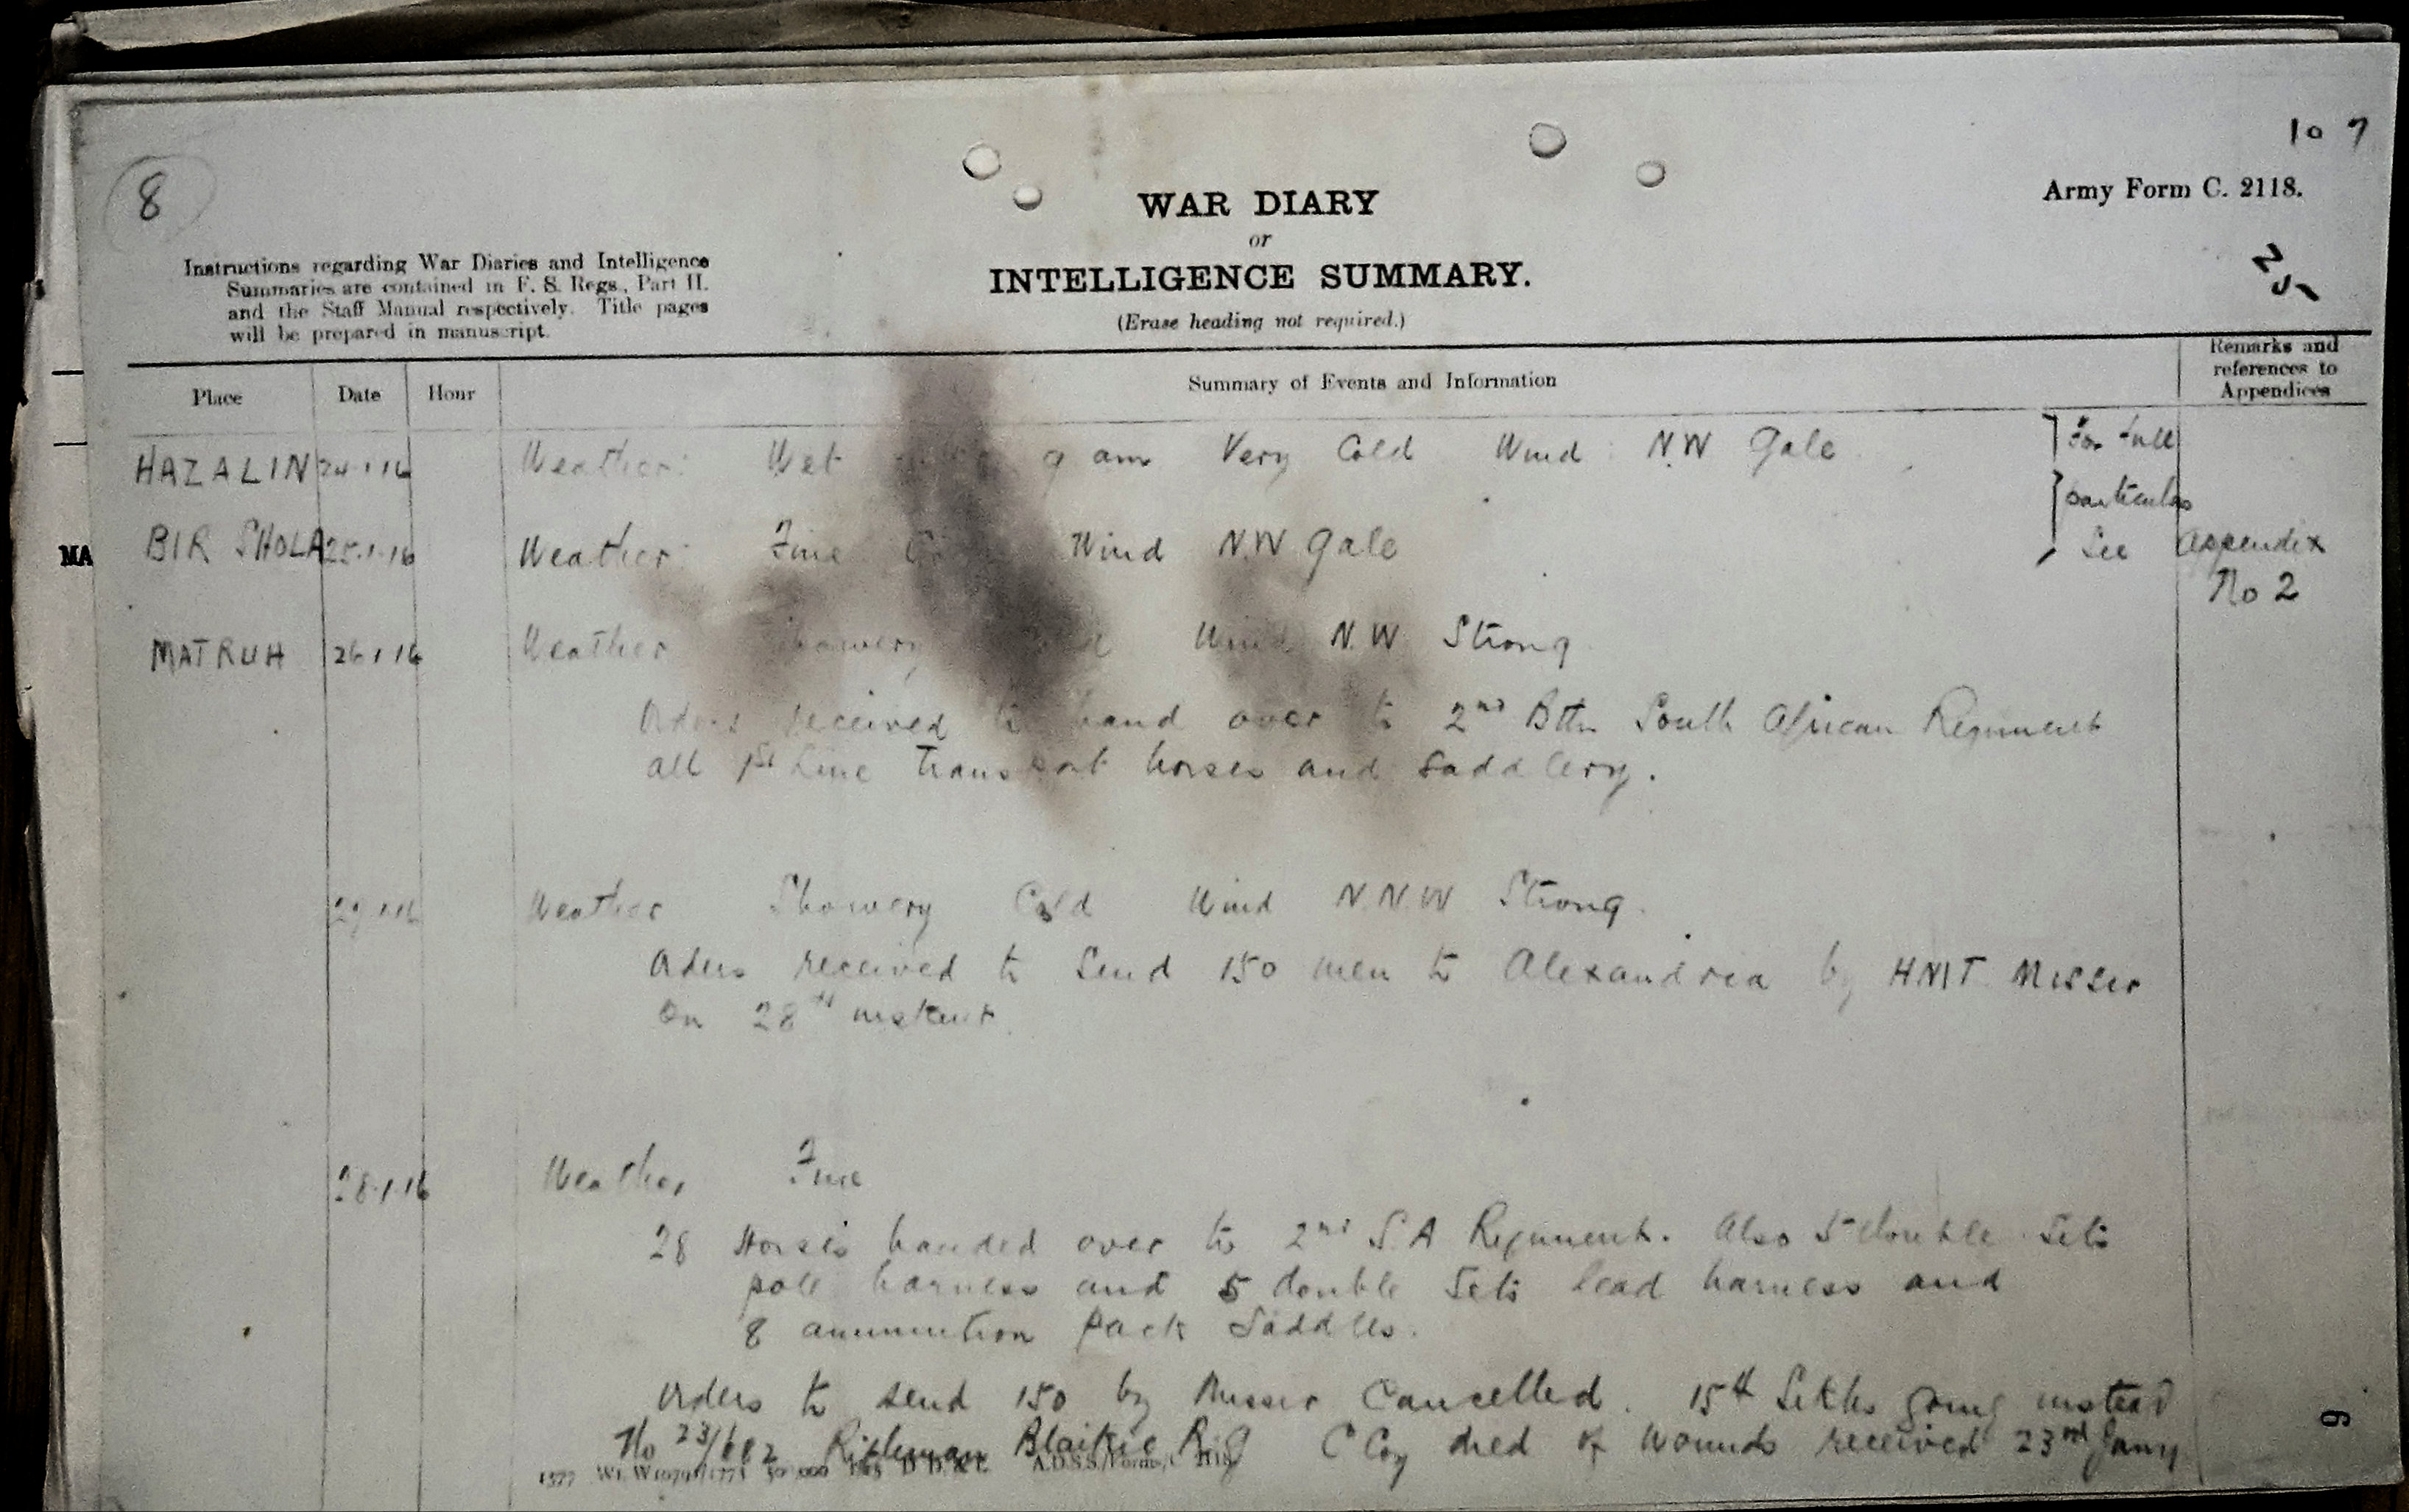 107
8
Army Form C. 2118.
25
WAR DIARY
or
INTELLIGENCE SUMMARY.
(Erase heading not required.)
Instructions regarding War Diaries and Intelligence
Summaries are contained in F. S. Regs., Part II.
and the Staff Manual respectively. Title pages
will be prepared in manuscript.
Place Date Hour Summary of Events and Information Remarks and references to Appendices
HAZALIN 24.1.16 Weather: Wet 9 am Very Cold Wind: N.W Gale For full
particulars
BIR SHOLA 25.1.16 Weather: Fine Wind N.W Gale See Appendix
No 2
MA
MATRUH 26.1.16 Weather Showery Wind N.W. Strong
Orders received to hand over to 2nd Bttn South African Regiment
all 1st Line transport horses and saddlery.
Weather Showery Cold Wind N.N.W Strong.
Orders received to send 150 men to Alexandria by HMT Misser
on 28th instant.
28.1.16 Weather Fine
28 Horses handed over to 2nd S.A Regiment. Also 5 double sets
pole harness and 5 double sets lead harness and
8 ammunition pack saddles.
Orders to send 150 by Misser Cancelled. 15th Sikhs going instead
No 23/682 Rifleman Blaikie R.G C Coy died of wounds received 23rd Jany
9